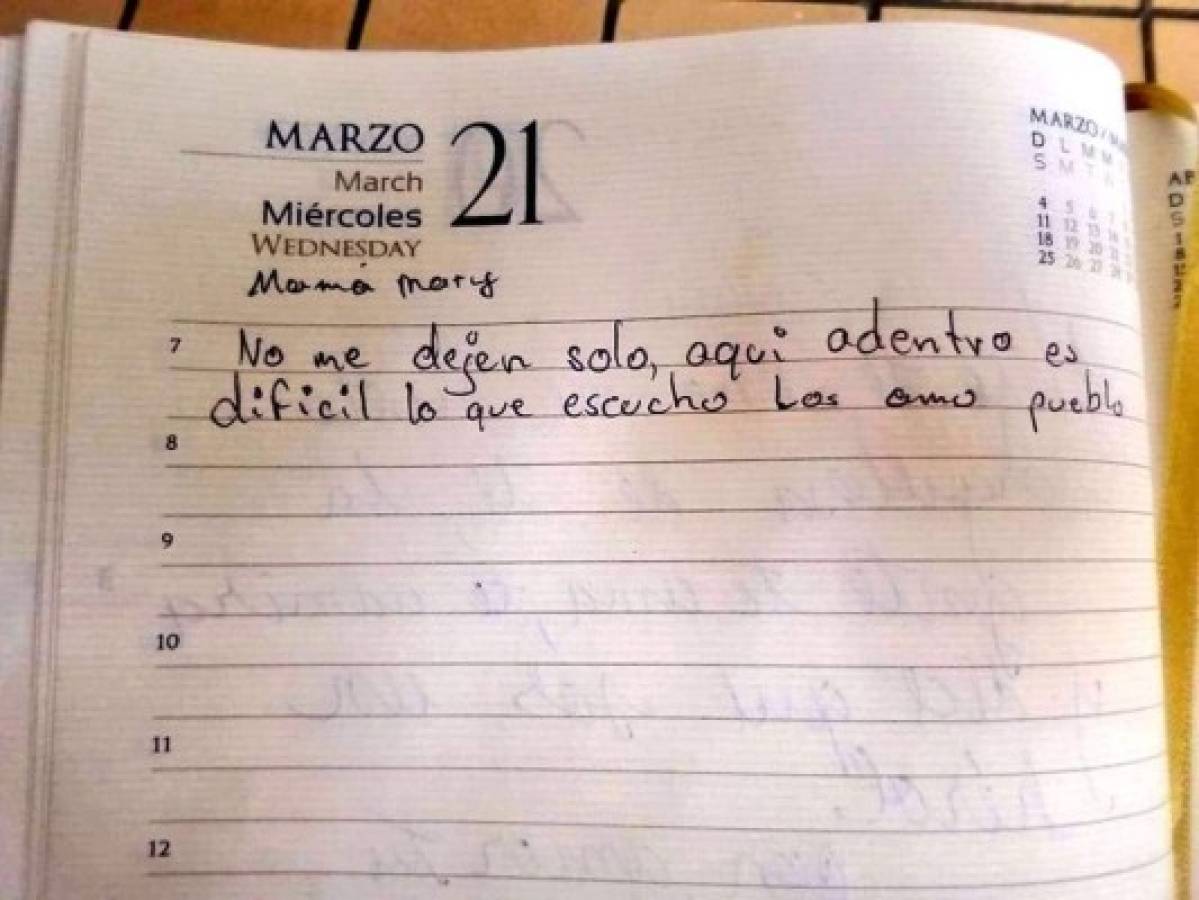 MARZO 21
March
Miércoles
WEDNESDAY
Mamá mary
7 No me dejen solo, aqui adentro es
dificil lo que escucho Los amo pueblo
8
9
10
11
12
MARZO /
D L M M
S M T
4 5 6 7
11 12 13 14
18 19 20 21
25 26 27 28
AP
D
S
1
8